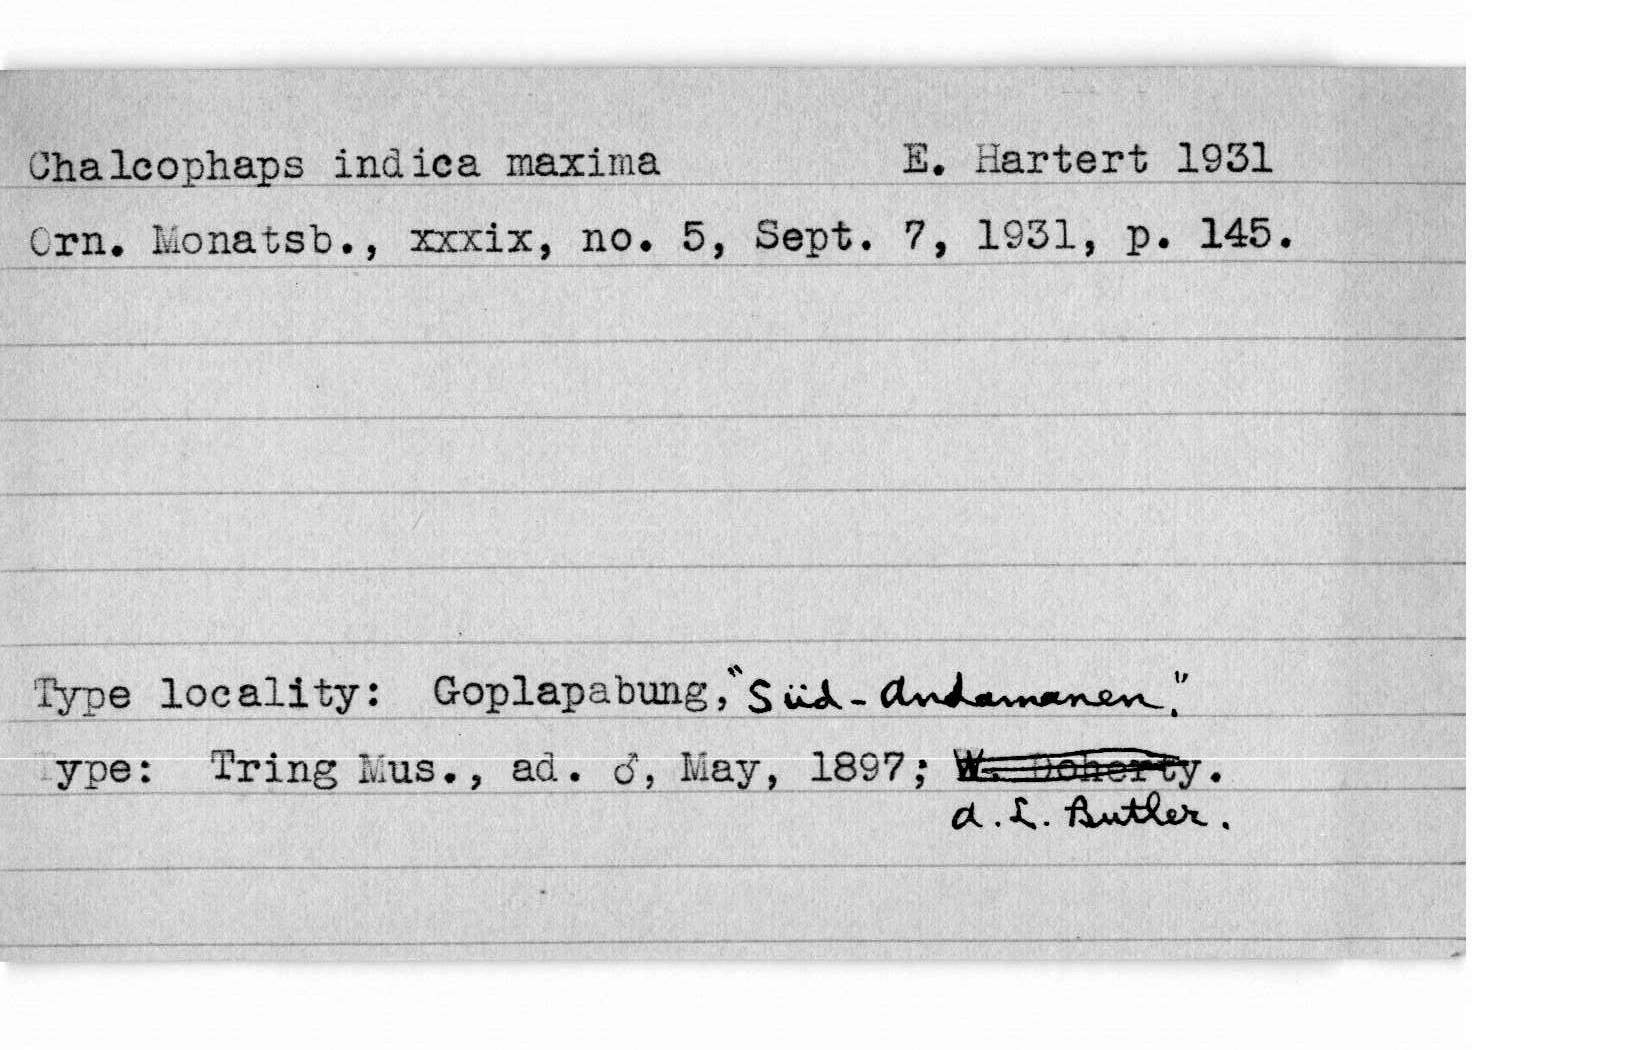 Chalcophaps indica maxima E. Hartert 1931
Orn. Monatsb., xxxix, no. 5, Sept. 7, 1931, p. 145.
Type locality: Goplapabung, "Süd-Andamanen."
Type: Tring Mus., ad. ♂, May, 1897; W. Doherty.
A. L. Butler.